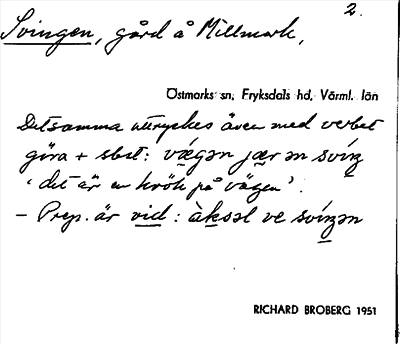 2.
Svingen, gård å Millmark,
Östmarks sn, Fryksdals hd, Värml. län
Detsamma uttryckes även med verbet
göra + sbst: vǽgən jær ən svíŋ
‘det är en krök på vägen’.
– Prep. är vid: àksəl ve svíŋən
RICHARD BROBERG 1951